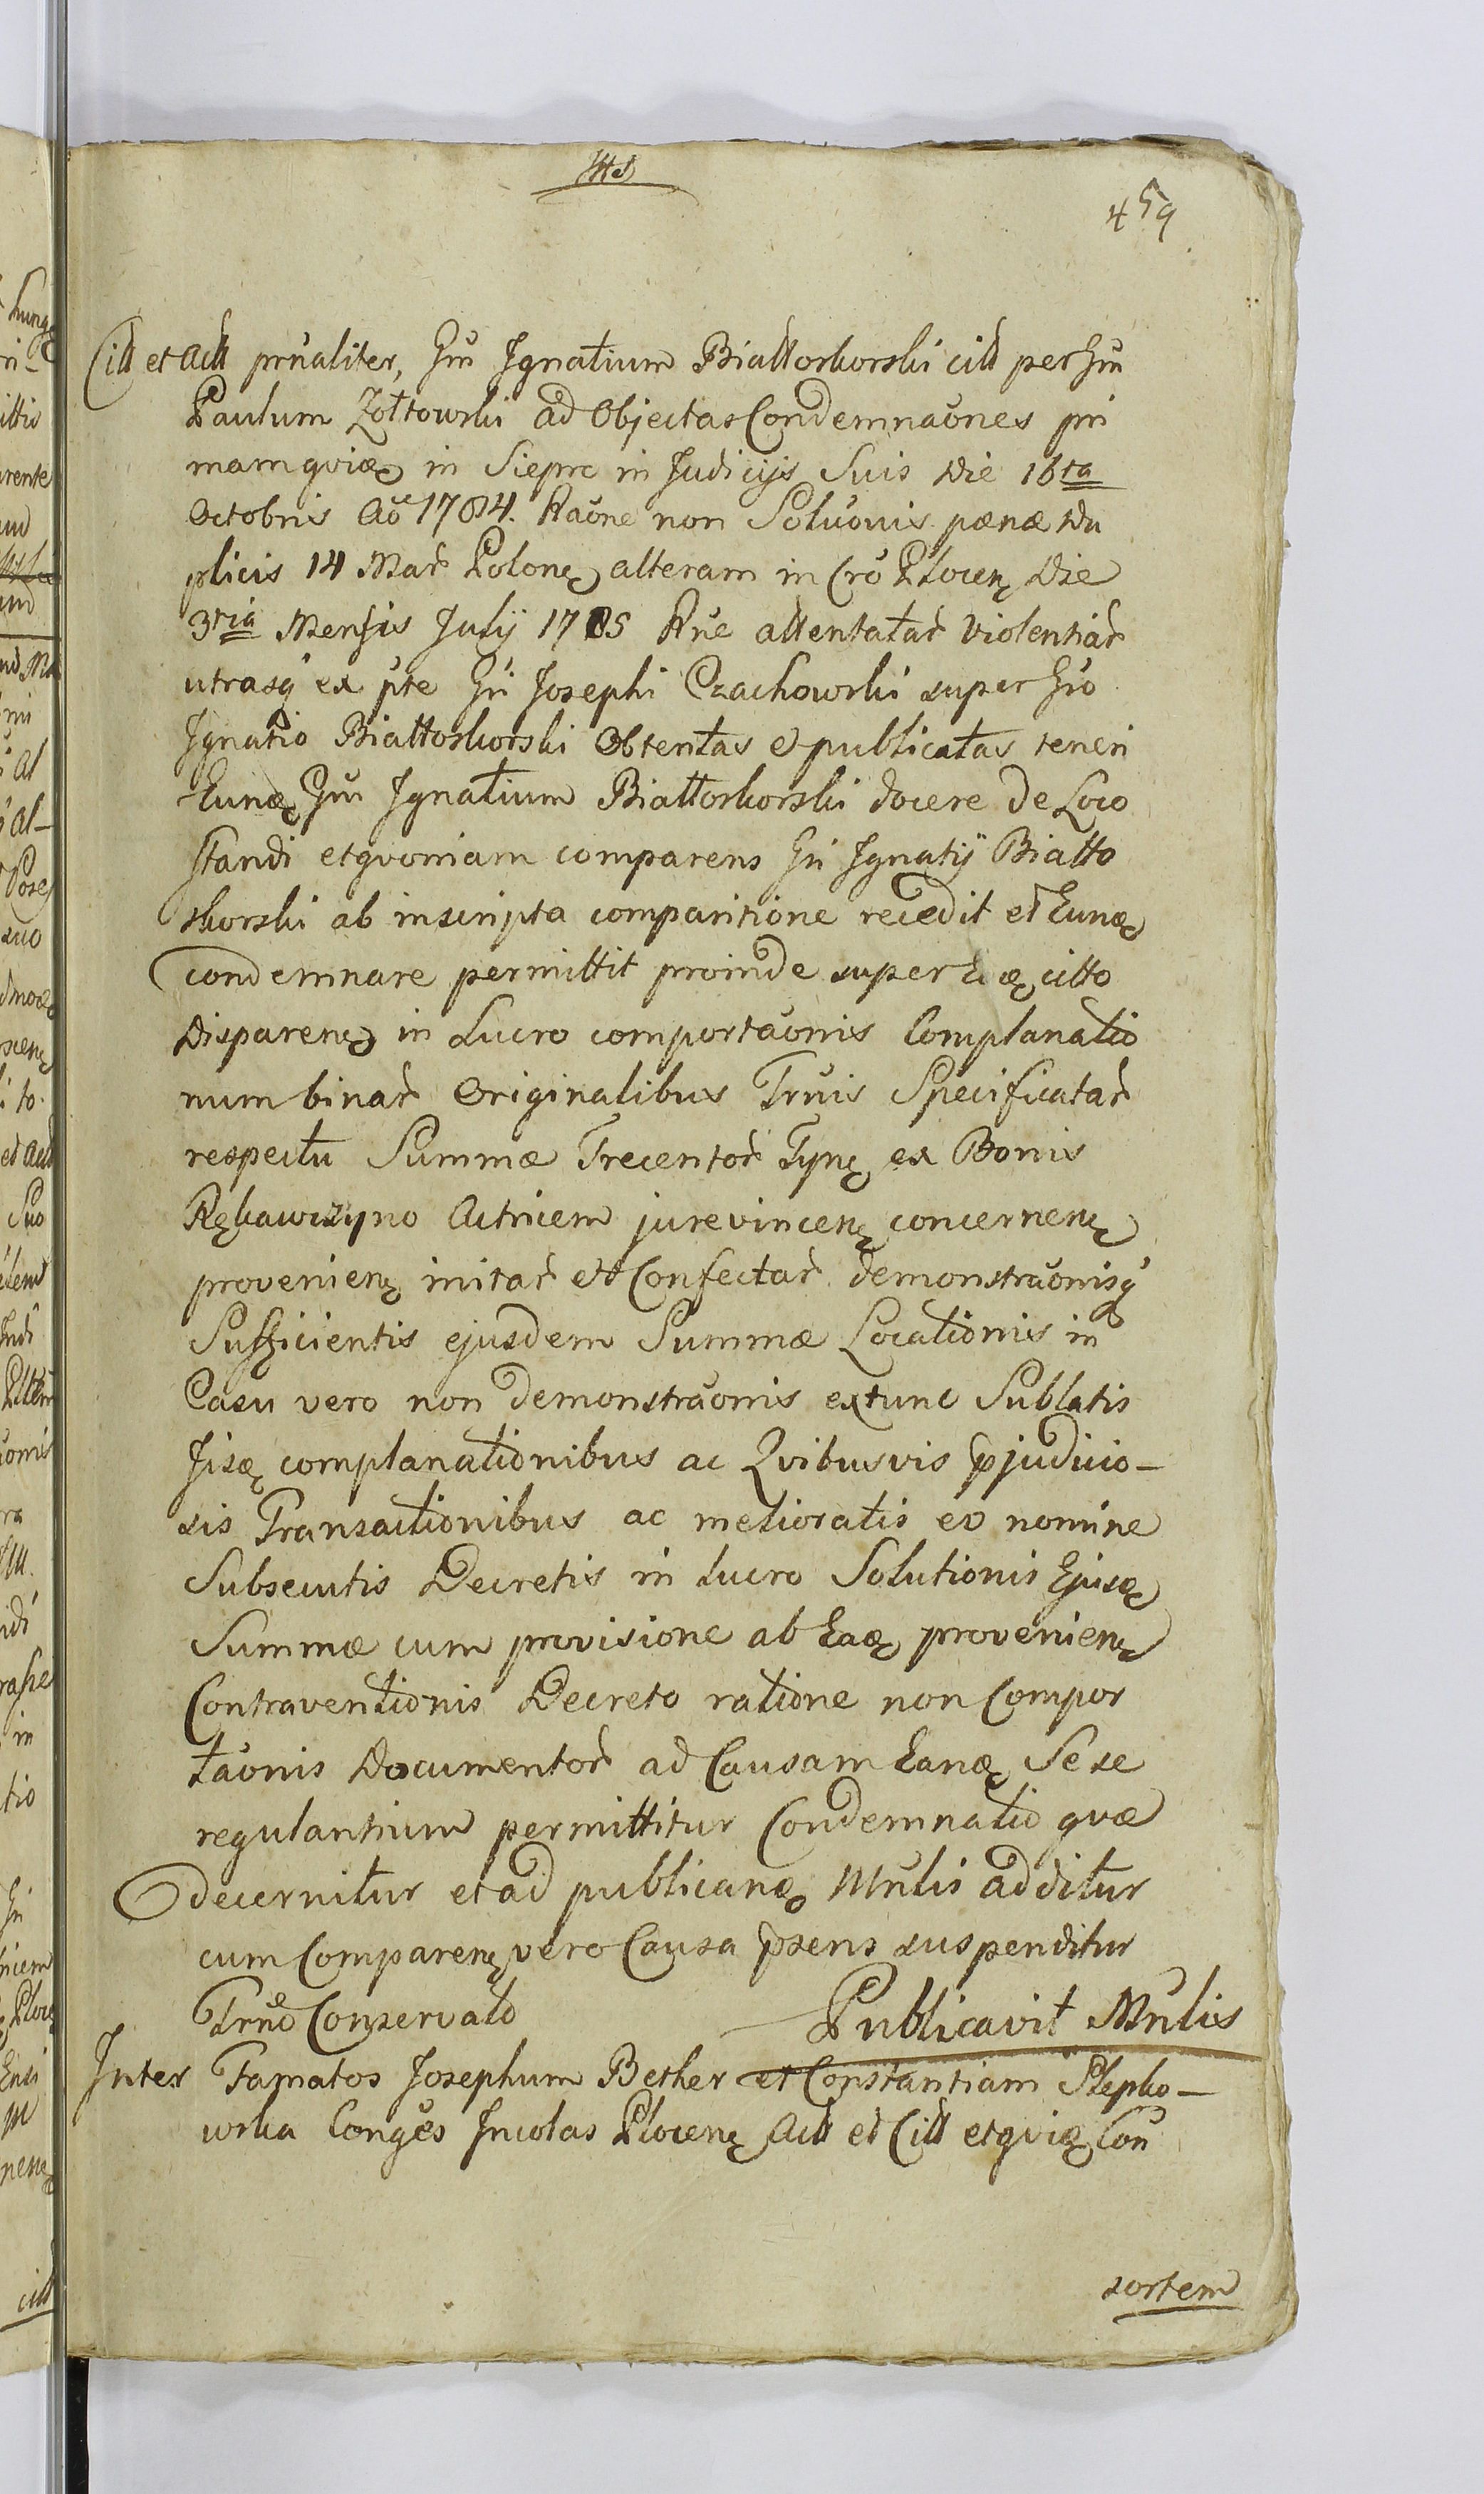 459
Citt et Actt prnaliter, Gm Ignatium Białłoskorski citt per Gm
Paulum Zołtowski ad Objectas Condemnaones pri
mamqviæ in Sieprc in Judicijs Suis Die 16ta
Octobris Aõ 1784. Raõne non Soluonis pœnæ du
plicis 14 Mar Polonę alteram in Crõ Plocen Die
3tia Mensis Julÿ 1785 Rñe attentatar Violentiar
utrasq ex pte Gñ Josephi Czachowski super Gño
Ignatio Białłoskorski Obtentas et publicatas teneri
Eunę Gm Ignatium Białłoskorski docere de Loco
standi et qvoniam comparens Gñ Ignatÿ Białło
skorski ab inscripta comparitione recedit et Eunę
condemnare permittit proinde super Eoę citto
Disparenę in Lucro comportaonis Complanatio
num binar Originalibus Trñis Specificatar
respectu Summæ Trecentor Tynę ex Bonis
Rękawczyno Actricem jurevincenę concernenę
provenienę initar et Confectar demonstraonisq
Sufficientis ejusdem Summæ Locationis in
Casu vero non demonstraonis extunc Sublatis
Jisę complanationibus ac Qvibusvis pjudicio-
sis Transactionibus ac melioratis eo nomine
Subsecutis Decretis in lucro Solutionis Ejusę
Summæ cum provisione ab Eaę provenienę
Contraventionis Decreto ratione non Compor
taonis Documentor ad Causam Eanę Sese
regulantium permittitur Condemnatio qvæ
decernitur et ad publicanę Mnlis additur
cum Comparenę vero Causa psens suspenditur
Trño Conservato Publicavit Mnlis
Inter Famatos Josephum Bether et Constantiam Slepko-
wska Conges Incolas Plocenę Actt et Citt et qviæ Con
sortem